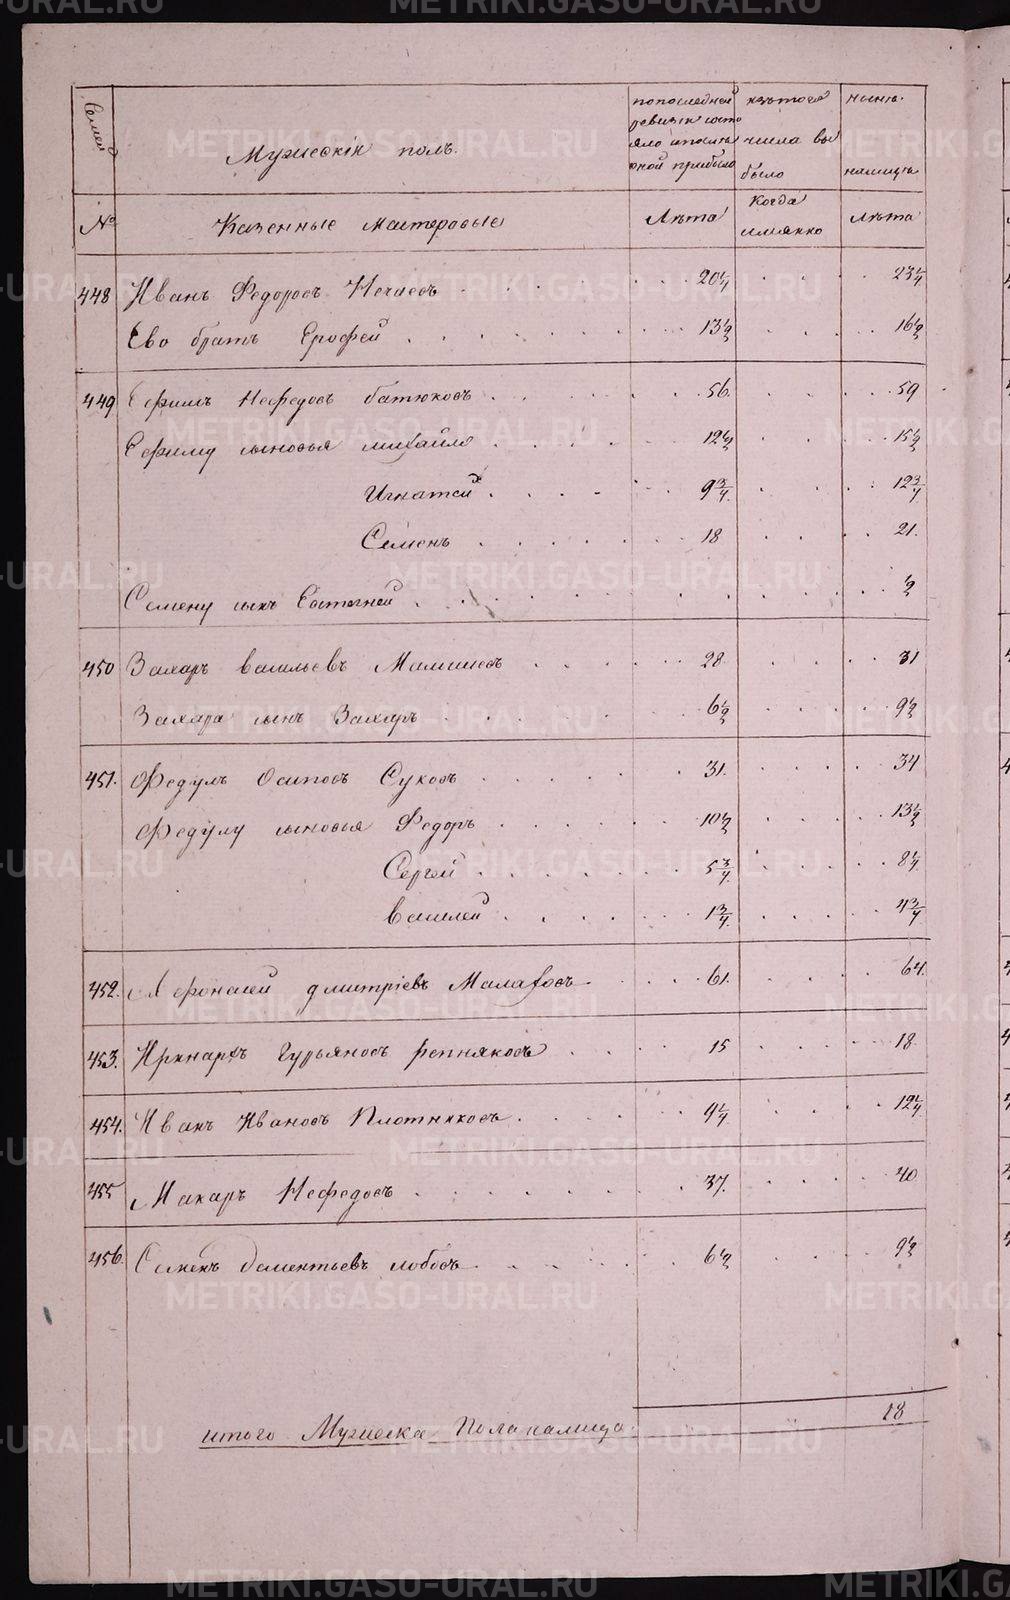 Семей
Мужескiй полъ.
попоследней
ревизiи состо
яло ипосле
оной прибыло
изътого
числа вы
было
ныне
налицо
№
Казенные мастеровые
Лѣта
Когда
имянно
Лѣта
448 Иванъ Федоровъ Нечаевъ 20¼ 23¼
Ево братъ Ерофей 13½ 16½
449 Ефимъ Нефедовъ батюковъ 56. 59
Ефиму сыновья михайло 12½ 15½
Игнатей 9¾ 12¾
Семенъ 18 21.
Семену сынъ Евстегней ½
450 Захаръ васильевъ Мамаевъ 28 31
Захара сынъ Захаръ 6½ 9½
451. Федулъ Осиповъ Суховъ 31. 34
Федулу сыновья Федоръ 10½ 13½
Сергей 5¾ 8¼
василей 1¾ 4¾
452. Афонасей дмитрiевъ Малаховъ 61. 64.
453. Иринархъ Гурьяновъ репняковъ 15 18
454. Иванъ Ивановъ Плотниковъ 9¼ 12¼
455 Макаръ Нефедовъ 37. 40
456. Семенъ Дементьевъ лобовъ 6½ 9½
итого Мужеска Пола налицо. 18
METRIKI.GASO-URAL.RU